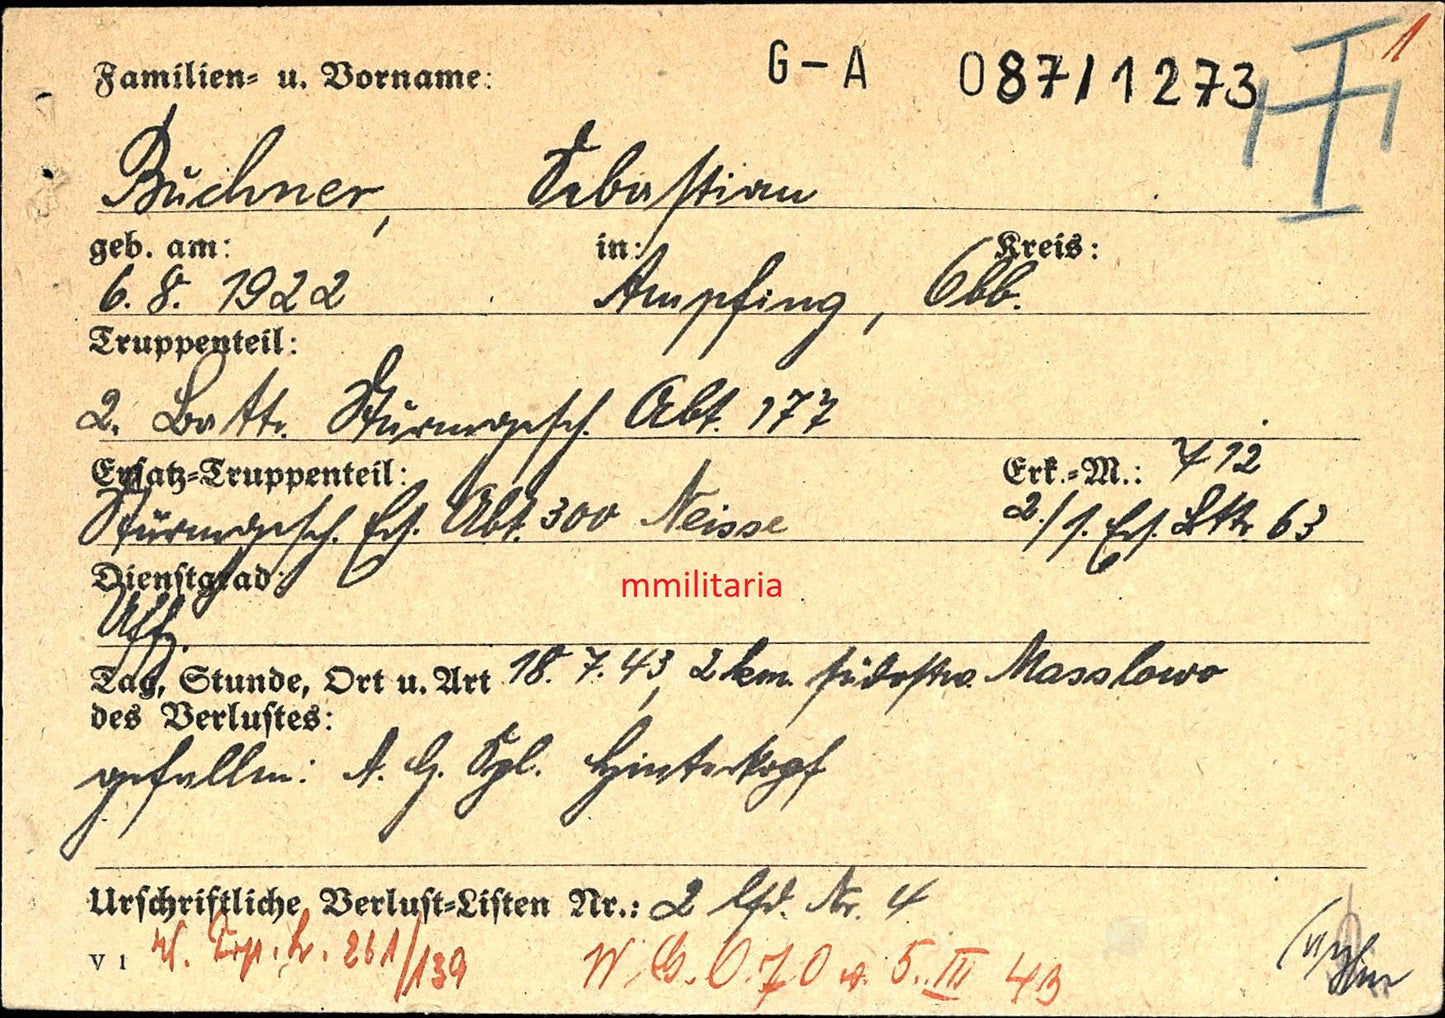 G-A 087/1273 1
Familien- u. Vorname:
Büchner, Sebastian
geb. am: in: Kreis:
6. 8. 1922 Ampfing, Obb.
Truppenteil:
2. Battr. Sturmgesch. Abt. 177
Ersatz-Truppenteil: Erk.-M.: 412
Sturmgesch. Ers. Abt. 300 Neisse 2./ s. Ers. Bttr. 63
Dienstgrad:
mmilitaria
Uffz.
Tag, Stunde, Ort u. Art 18. 7. 43, 2 km. südostw. Masslowo
des Verlustes:
gefallen: A. G. Spl. Hinterkopf
Urschriftliche Verlust-Listen Nr.: 2 lfd. Nr. 4
V 1 261/139 5. III 43